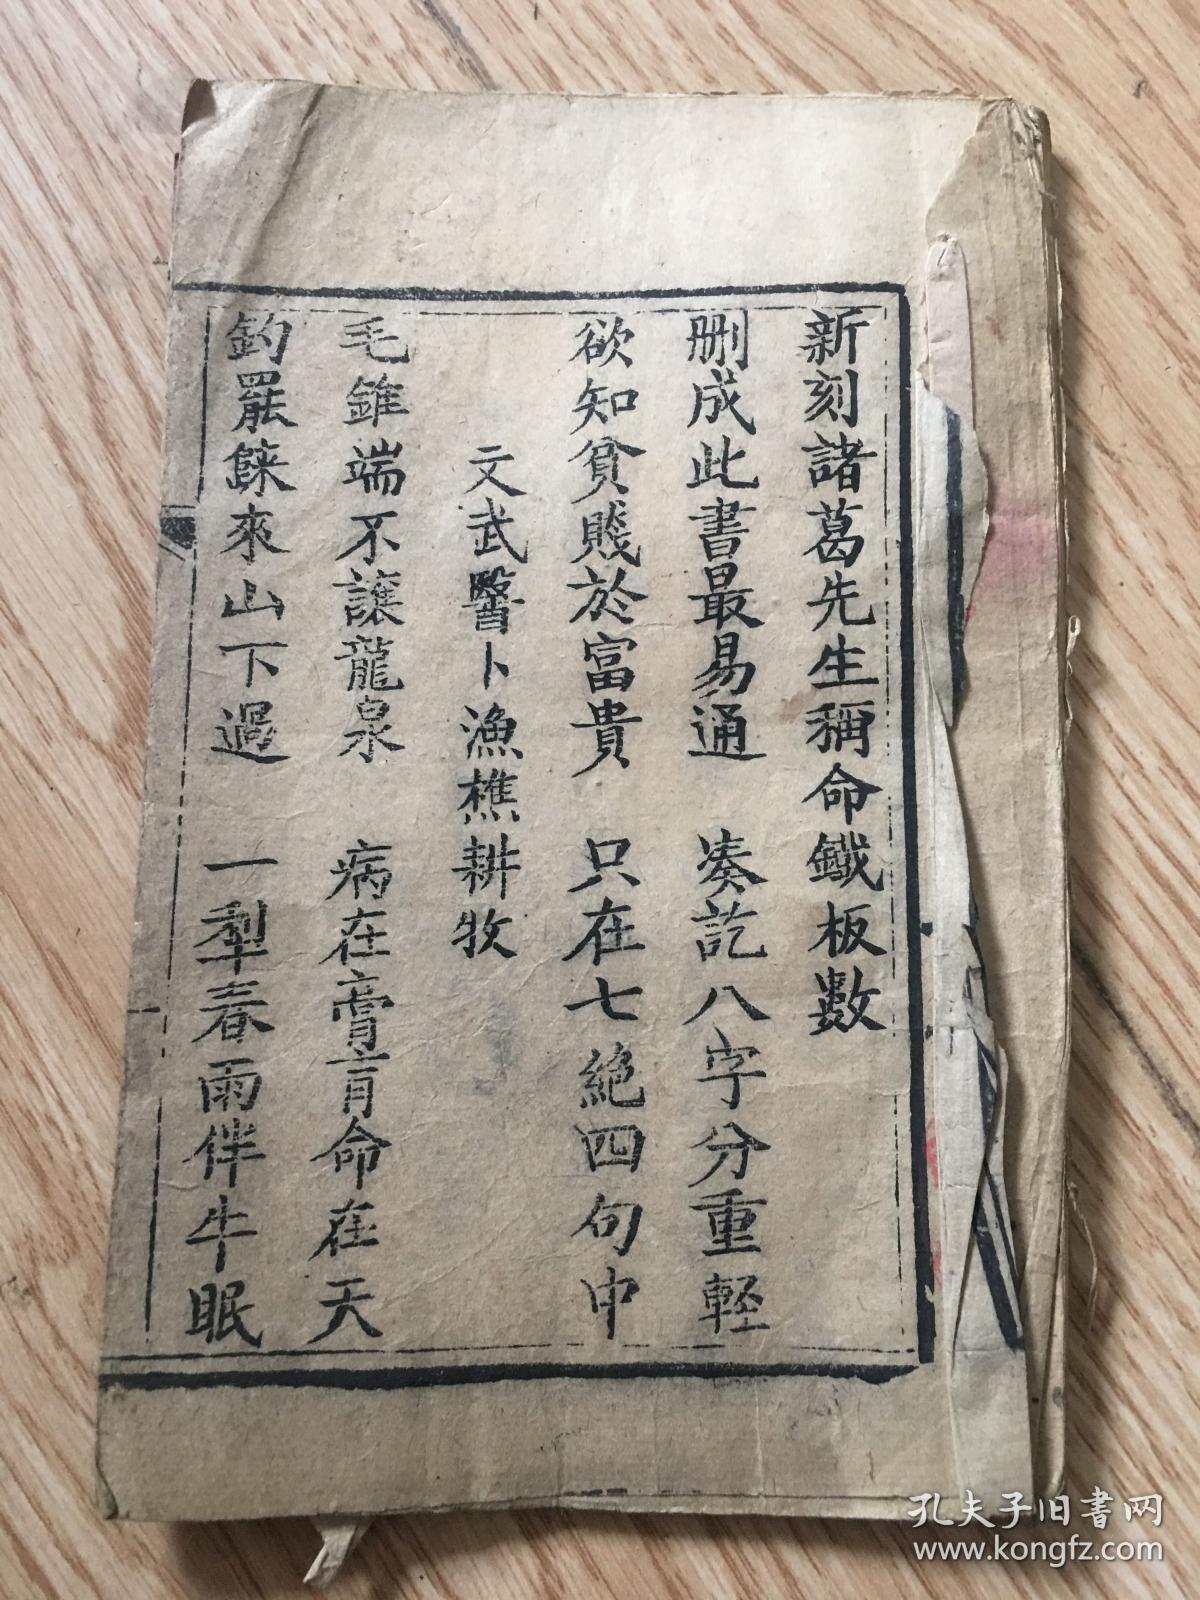 新刻諸葛先生稱命鐵板數
刪成此書最易通　凑訖八字分重軽
欲知貧賤於富貴　只在七絶四句中
文武醫卜漁樵耕牧
毛錐端不讓龍泉　病在膏肓命在天
釣罷歸來山下過　一犁春雨伴牛眠
孔夫子旧书网
www.kongfz.com